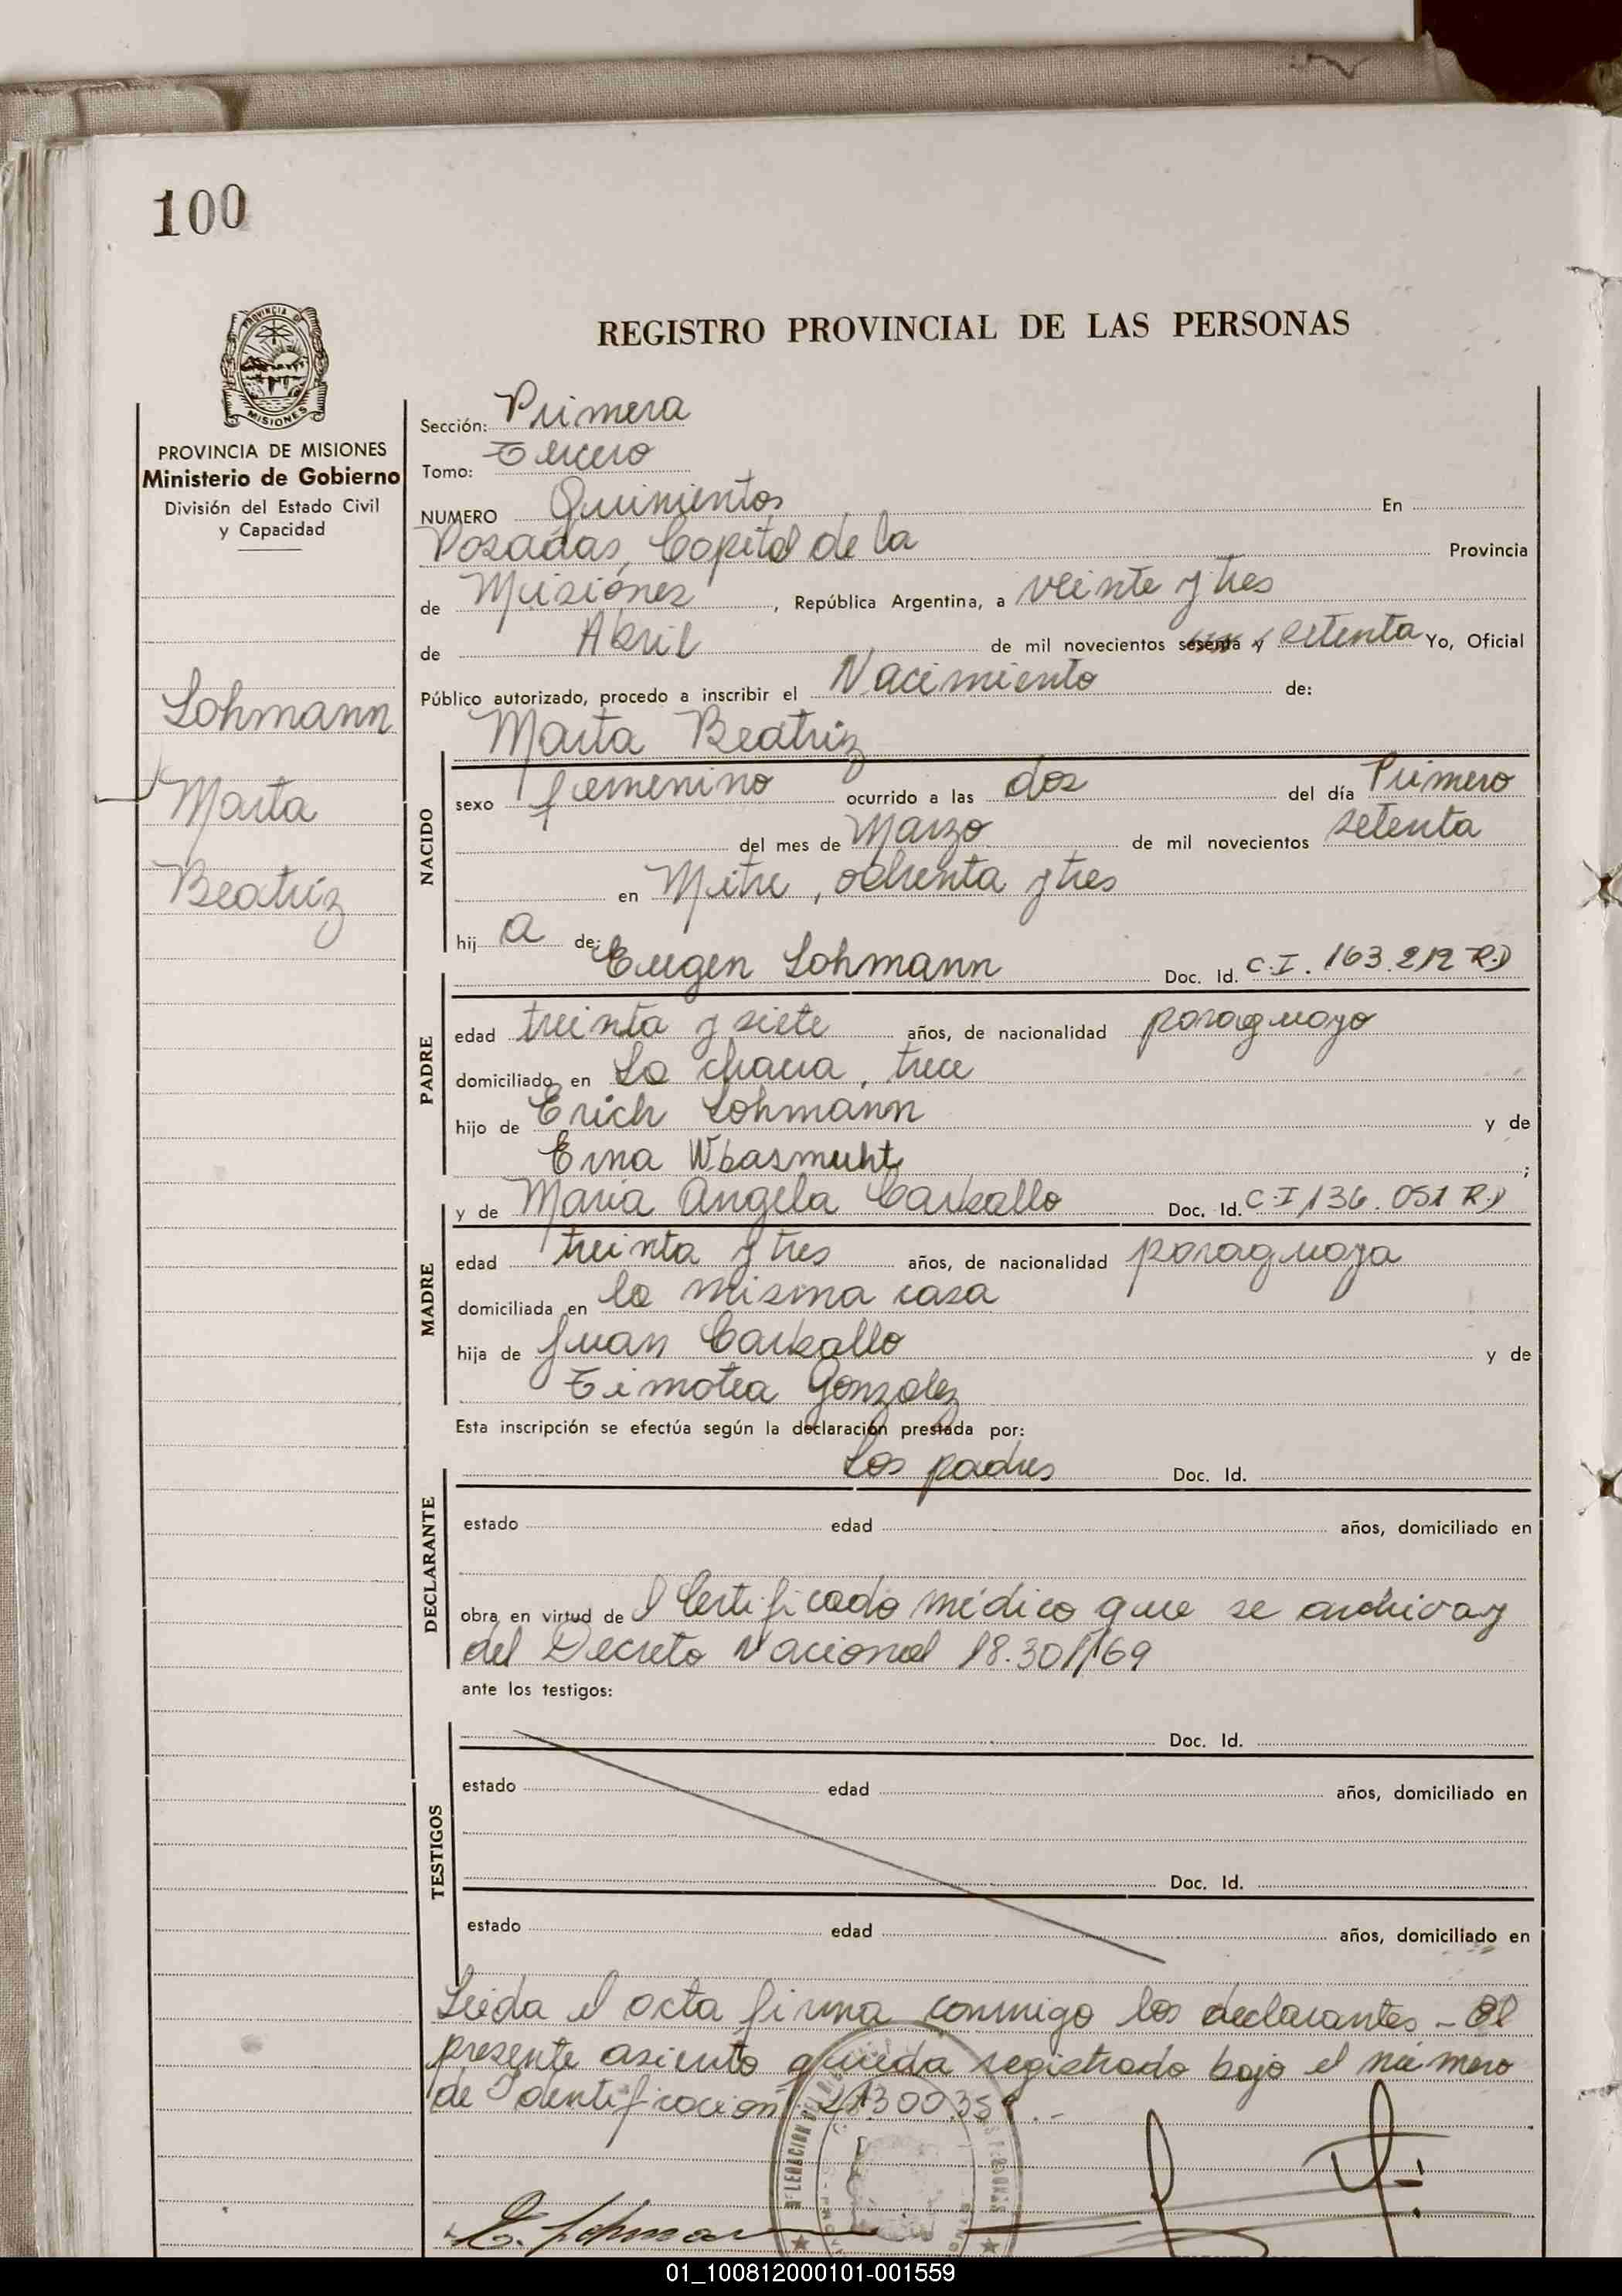 100
REGISTRO PROVINCIAL DE LAS PERSONAS
PROVINCIA DE MISIONES
Ministerio de Gobierno
División del Estado Civil
y Capacidad
Lohmann
Marta
Beatriz
Sección: Primera
Tomo: Tercero
NUMERO Quinientos En
Posadas, Capital de la Provincia
de Misiones, República Argentina, a veinte y tres
de Abril de mil novecientos sesenta y setenta Yo, Oficial
Público autorizado, procedo a inscribir el Nacimiento de:
Marta Beatriz
NACIDO
sexo femenino ocurrido a las dos del día Primero
del mes de Marzo de mil novecientos setenta
en Mitre, ochenta y tres
hij a de: Eugen Lohmann Doc. Id. C.I. 163.212 R.P
PADRE
edad treinta y siete años, de nacionalidad paraguayo
domiciliado en La chacra, trece
hijo de Erich Lohmann y de
Erna ;
y de Maria Angela Carballo Doc. Id. C.I 136.051 R.P
MADRE
edad treinta y tres años, de nacionalidad paraguaya
domiciliada en la misma casa
hija de Juan Carballo y de
Timotea Gonzalez
Esta inscripción se efectúa según la declaración prestada por:
Los padres Doc. Id.
DECLARANTE
estado edad años, domiciliado en
obra en virtud de l Certificado médico que se archiva y
del Decreto Nacional 18.301/69
ante los testigos:
TESTIGOS
Doc. Id.
estado edad años, domiciliado en
Doc. Id.
estado edad años, domiciliado en
Leida el acta firma conmigo los declarantes - El
presente asiento queda registrado bajo el número
de Identificación
E. Lohmann
01_100812000101-001559